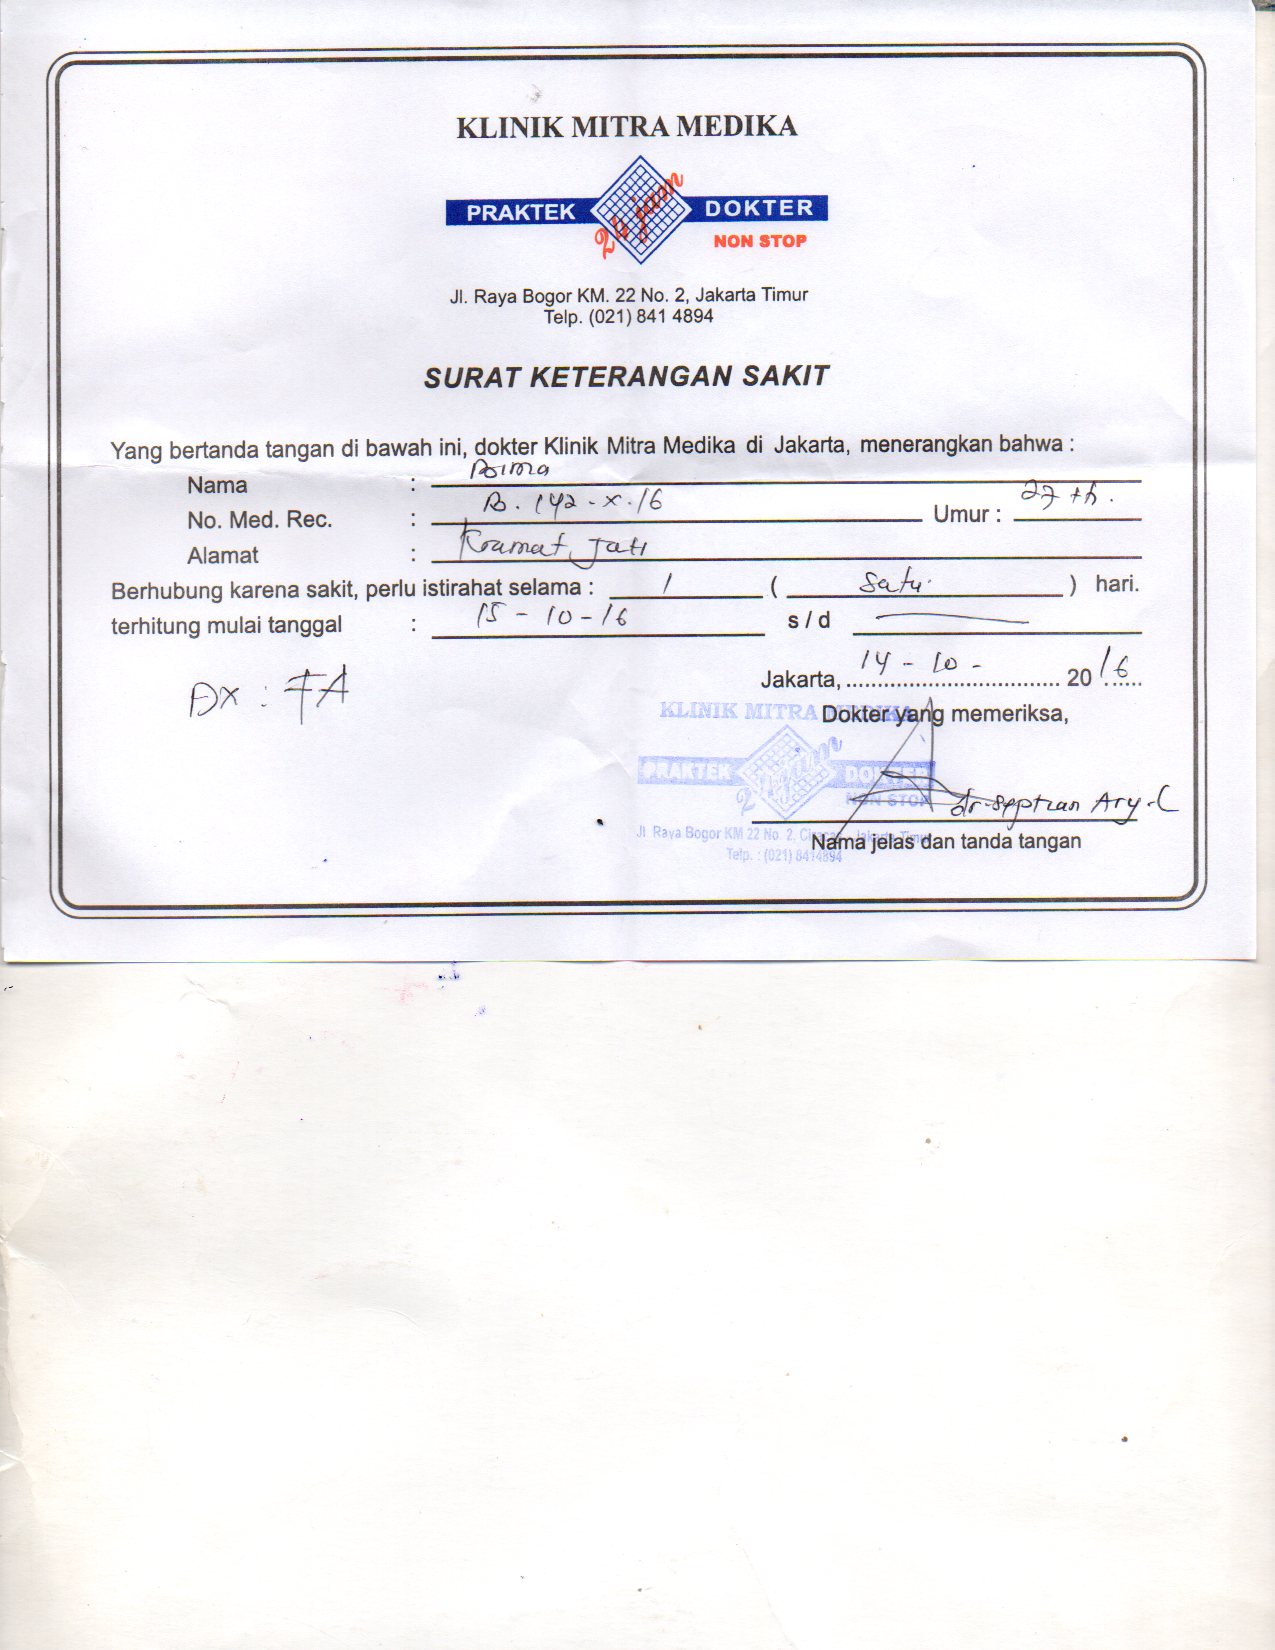 KLINIK MITRA MEDIKA
PRAKTEK DOKTER
24 jam
NON STOP
Jl. Raya Bogor KM. 22 No. 2, Jakarta Timur
Telp. (021) 841 4894
SURAT KETERANGAN SAKIT
Yang bertanda tangan di bawah ini, dokter Klinik Mitra Medika di Jakarta, menerangkan bahwa :
Nama : Bima
No. Med. Rec. : B. 142 - X. 16 Umur : 27 th.
Alamat : Kramat Jati
Berhubung karena sakit, perlu istirahat selama : 1 ( satu ) hari.
terhitung mulai tanggal : 15 - 10 - 16 s / d —
Jakarta, 14 - 10 - 2016
DX :
Dokter yang memeriksa,
KLINIK MITRA MEDIKA
PRAKTEK DOKTER
24 jam
NON STOP
dr. Septian Ary. C
Jl Raya Bogor KM 22 No. 2, Ciracas Jakarta Timur
Nama jelas dan tanda tangan
Telp. : (021) 8414894